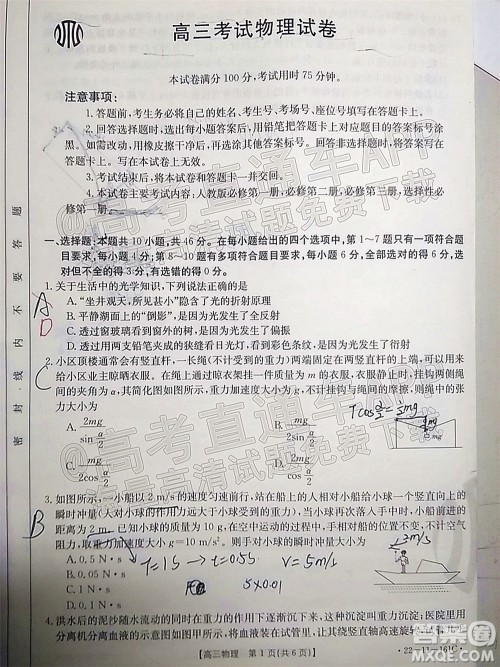 高三考试物理试卷
本试卷满分100分,考试用时75分钟。
注意事项:
1.答题前,考生务必将自己的姓名、考生号、考场号、座位号填写在答题卡上。
2.回答选择题时,选出每小题答案后,用铅笔把答题卡上对应题目的答案标号涂
黑。如需改动,用橡皮擦干净后,再选涂其他答案标号。回答非选择题时,将答案写在
答题卡上。写在本试卷上无效。
3.考试结束后,将本试卷和答题卡一并交回。
4.本试卷主要考试内容:人教版必修第一册,必修第二册,必修第三册,选择性必
修第一册
一、选择题:本题共10小题,共46分。在每小题给出的四个选项中,第1~7题只有一项符合题
目要求,每小题4分;第8~10题有多项符合题目要求,每小题6分,全部选对的得6分,选对
但不全的得3分,有选错的得0分。
1.关于生活中的光学知识,下列说法正确的是
A
A.“坐井观天,所见甚小”隐含了光的折射原理
D
B.平静湖面上的“倒影”,是因为光发生了衍射
C.透过窗玻璃看到窗外的树木,是因为光发生了反射
D.透过两支铅笔夹成的狭缝看日光灯,看到彩色条纹,是因为光发生了衍射
2.小区顶楼通常会有竖直杆,一长绳(不计受到的重力)两端固定在两竖直杆的上端,可以用来
C
给小区业主晾晒衣服。在绳上挂一衣架挂件质量为m的衣服,衣服静止时,挂钩两侧绳
间的夹角为α,其简化图如图所示,重力加速度大小为g,不计挂钩与绳间的摩擦,则绳中的张
力大小为
A. 2mg/sin α/2
B. mg/2sin α/2
C. mg/2cos α/2
D. 2mg/cos α/2
Tcos α/2 = 1/2 mg
3.如图所示,一小船以2 m/s的速度匀速前行,站在船上的人相对小船给小球一个竖直向上的
B
瞬时冲量(人对小球的作用力远大于小球受到的重力),当小球再次落入手中时,小船前进的
距离为2 m。已知小球的质量为10 g,在空中运动时,手相对于船的位置不变,不计空气
阻力,取重力加速度大小g=10 m/s²。则手对小球的瞬时冲量大小为
A.0.5 N·s
B.0.05 N·s
C.0.1 N·s
D.1 N·s
t=1s → t=0.5s v=5m/s
5×0.01
2m/s
4.洪水后的泥沙随水流动的同时在重力的作用下逐渐沉下来,也叫自然沉降法;医院里用
高三物理 第1页(共6页)
密封线内不要答题